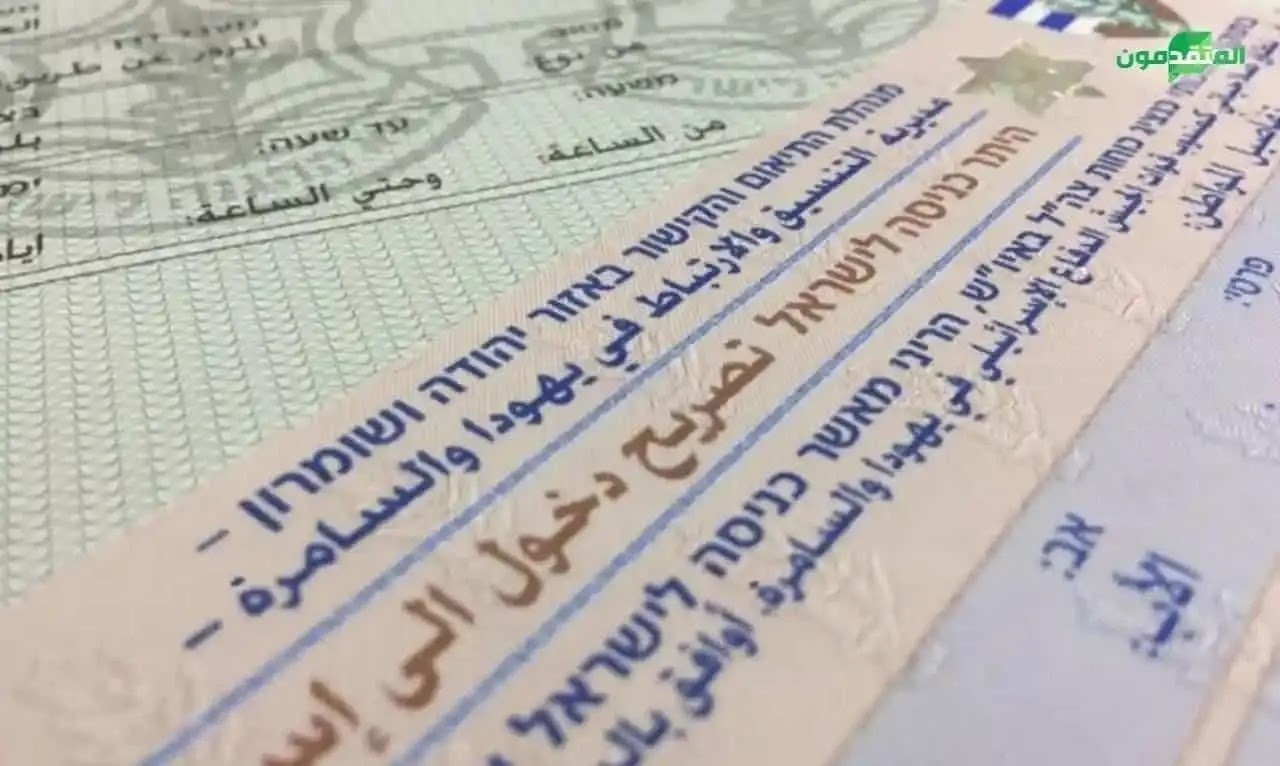 المتقدمون
المرور عن طريق
من نوع
משעה:
עד שעה:
من الساعة:
وحتي الساعة:
מנהלת התיאום והקישור באזור יהודה ושומרון -
مديرية التنسيق والارتباط في يهودا والسامرة -
היתר כניסה לישראל تصريح دخول الى إس
כנציג כוחות צה"ל באיו"ש, הריני מאשר כניסה לישראל
الدفاع الإسرائيلي في يهودا والسامرة. أوافق بال
פרטי
للمواطن:
אב:
الأب: